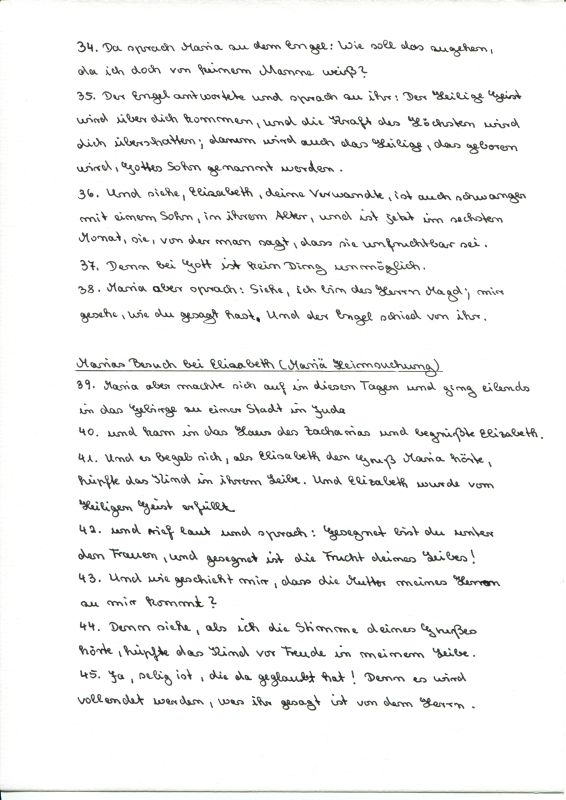 34. Da sprach Maria zu dem Engel: Wie soll das zugehen,
da ich doch von keinem Manne weiß?
35. Der Engel antwortete und sprach zu ihr: Der Heilige Geist
wird über dich kommen, und die Kraft des Höchsten wird
dich überschatten; darum wird auch das Heilige, das geboren
wird, Gottes Sohn genannt werden.
36. Und siehe, Elizabeth, deine Verwandte, ist auch schwanger
mit einem Sohn, in ihrem Alter, und ist jetzt im sechsten
Monat, sie, von der man sagt, dass sie unfruchtbar sei.
37. Denn bei Gott ist kein Ding unmöglich.
38. Maria aber sprach: Siehe, ich bin des Herrn Magd; mir
geschehe, wie du gesagt hast. Und der Engel schied von ihr.
Marias Besuch bei Elizabeth (Mariä Heimsuchung)
39. Maria aber machte sich auf in diesen Tagen und ging eilends
in das Gebirge zu einer Stadt in Juda
40. und kam in das Haus des Zacharias und begrüßte Elizabeth.
41. Und es begab sich, als Elisabeth den Gruß Maria hörte,
hüpfte das Kind in ihrem Leibe. Und Elizabeth wurde vom
Heiligen Geist erfüllt
42. und rief laut und sprach: Gesegnet bist du unter
den Frauen, und gesegnet ist die Frucht deines Leibes!
43. Und wie geschieht mir, dass die Mutter meines Herren
zu mir kommt?
44. Denn siehe, als ich die Stimme deines Grußes
hörte, hüpfte das Kind vor Freude in meinem Leibe.
45. Ja, selig ist, die da geglaubt hat! Denn es wird
vollendet werden, was ihr gesagt ist von dem Herrn.